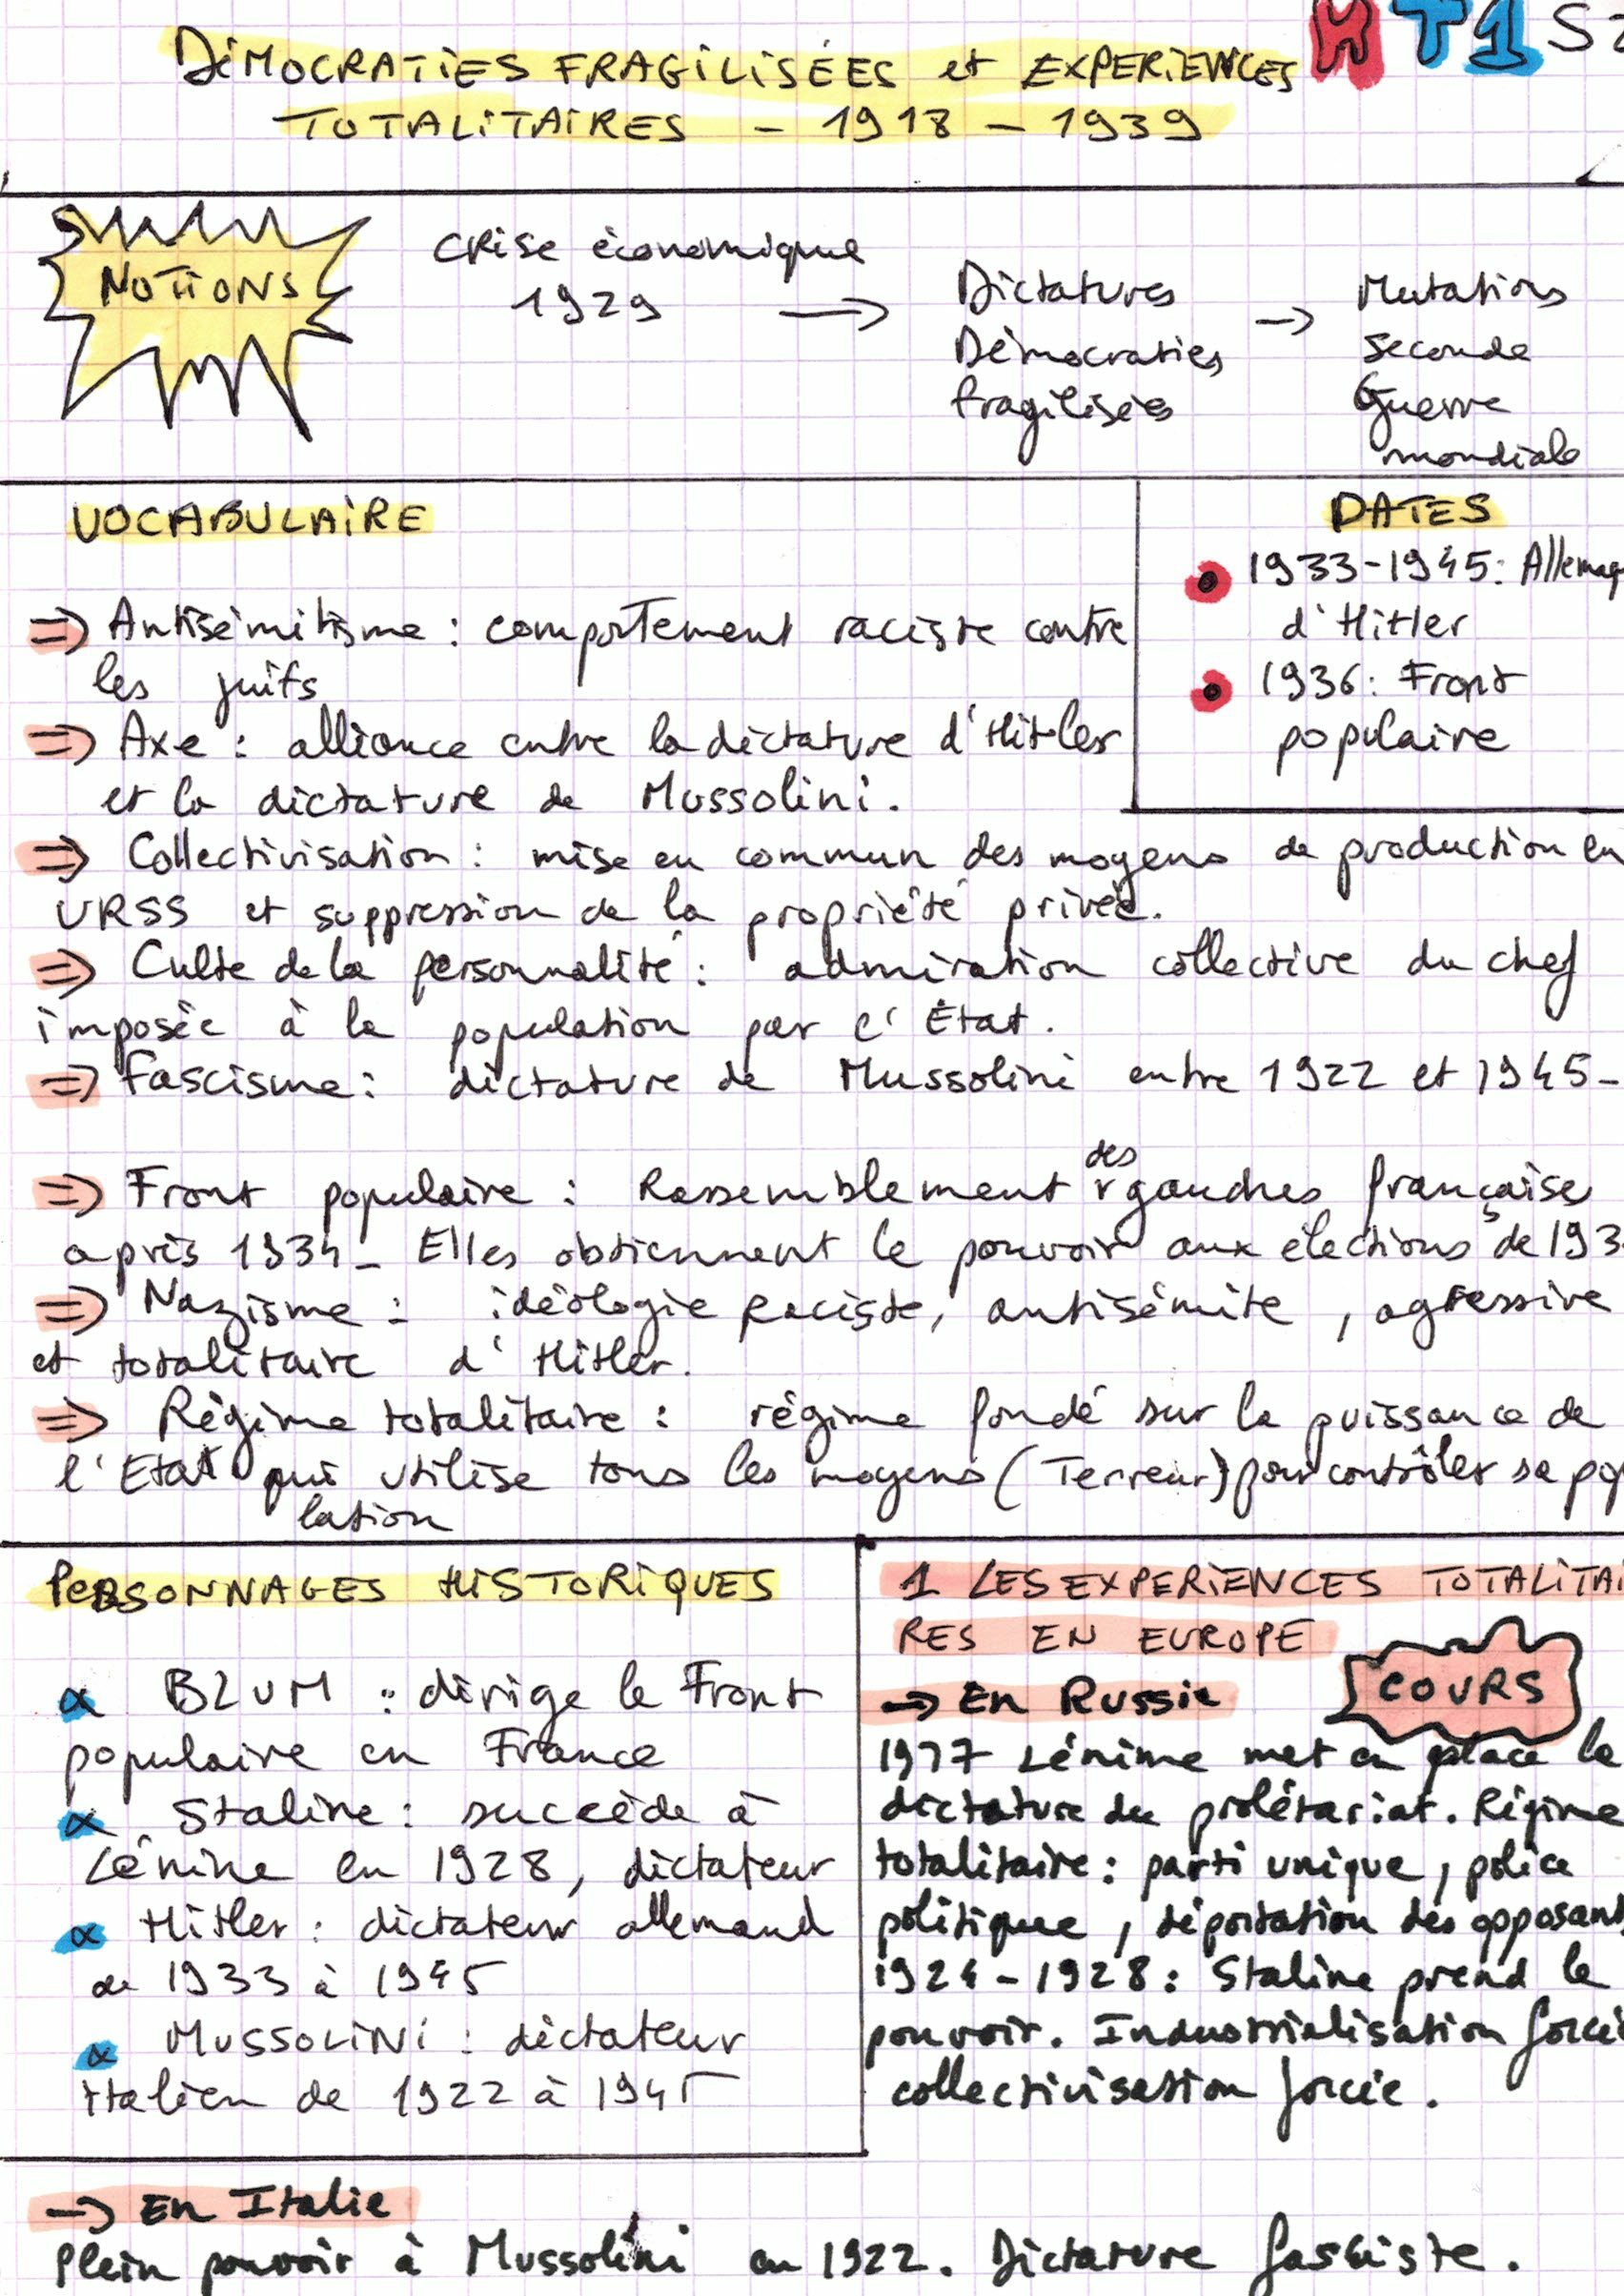 H T1 S
DÉMOCRATIES FRAGILISÉES et EXPERIENCES
TOTALITAIRES - 1918 - 1939
NOTIONS
CRise économique
1929 →
Dictatures
Démocraties
fragilisées
→
Mutations
seconde
Guerre
mondiale
VOCABULAIRE
⇒ Antisémitisme : comportement raciste contre
les juifs
⇒ Axe : alliance entre la dictature d'Hitler
et la dictature de Mussolini.
DATES
• 1933-1945: Allemag
d'Hitler
• 1936: Front
populaire
⇒ Collectivisation : mise en commun des moyens de production en
URSS et suppression de la propriété privée.
⇒ Culte de la personnalité : admiration collective du chef
imposée à la population par l'État.
⇒ Fascisme : dictature de Mussolini entre 1922 et 1945-
⇒ Front populaire : Rassemblement des gauches française
après 1934_ Elles obtiennent le pouvoir aux élections de 193
⇒ Nazisme : idéologie raciste, antisémite, agressive
et totalitaire d'Hitler.
⇒ Régime totalitaire : régime fondé sur la puissance de
l'Etat qui utilise tous les moyens (Terreur) pour contrôler sa pop
lation
PERSONNAGES HISTORIQUES
α BLUM : dirige le Front
populaire en France
α Staline : succède à
Lénine en 1928, dictateur
α Hitler : dictateur allemand
de 1933 à 1945
α MUSSOLINI : dictateur
italien de 1922 à 1945
1 LES EXPERIENCES TOTALITAI
RES EN EUROPE
→ En Russie
COURS
1917 Lénine met en place la
dictature du prolétariat. Régime
totalitaire : parti unique, police
politique, déportation des opposants
1924-1928: Staline prend le
pouvoir. Industrialisation forcée
collectivisation forcée.
→ En Italie
Plein pouvoir à Mussolini en 1922. Dictature fasciste.